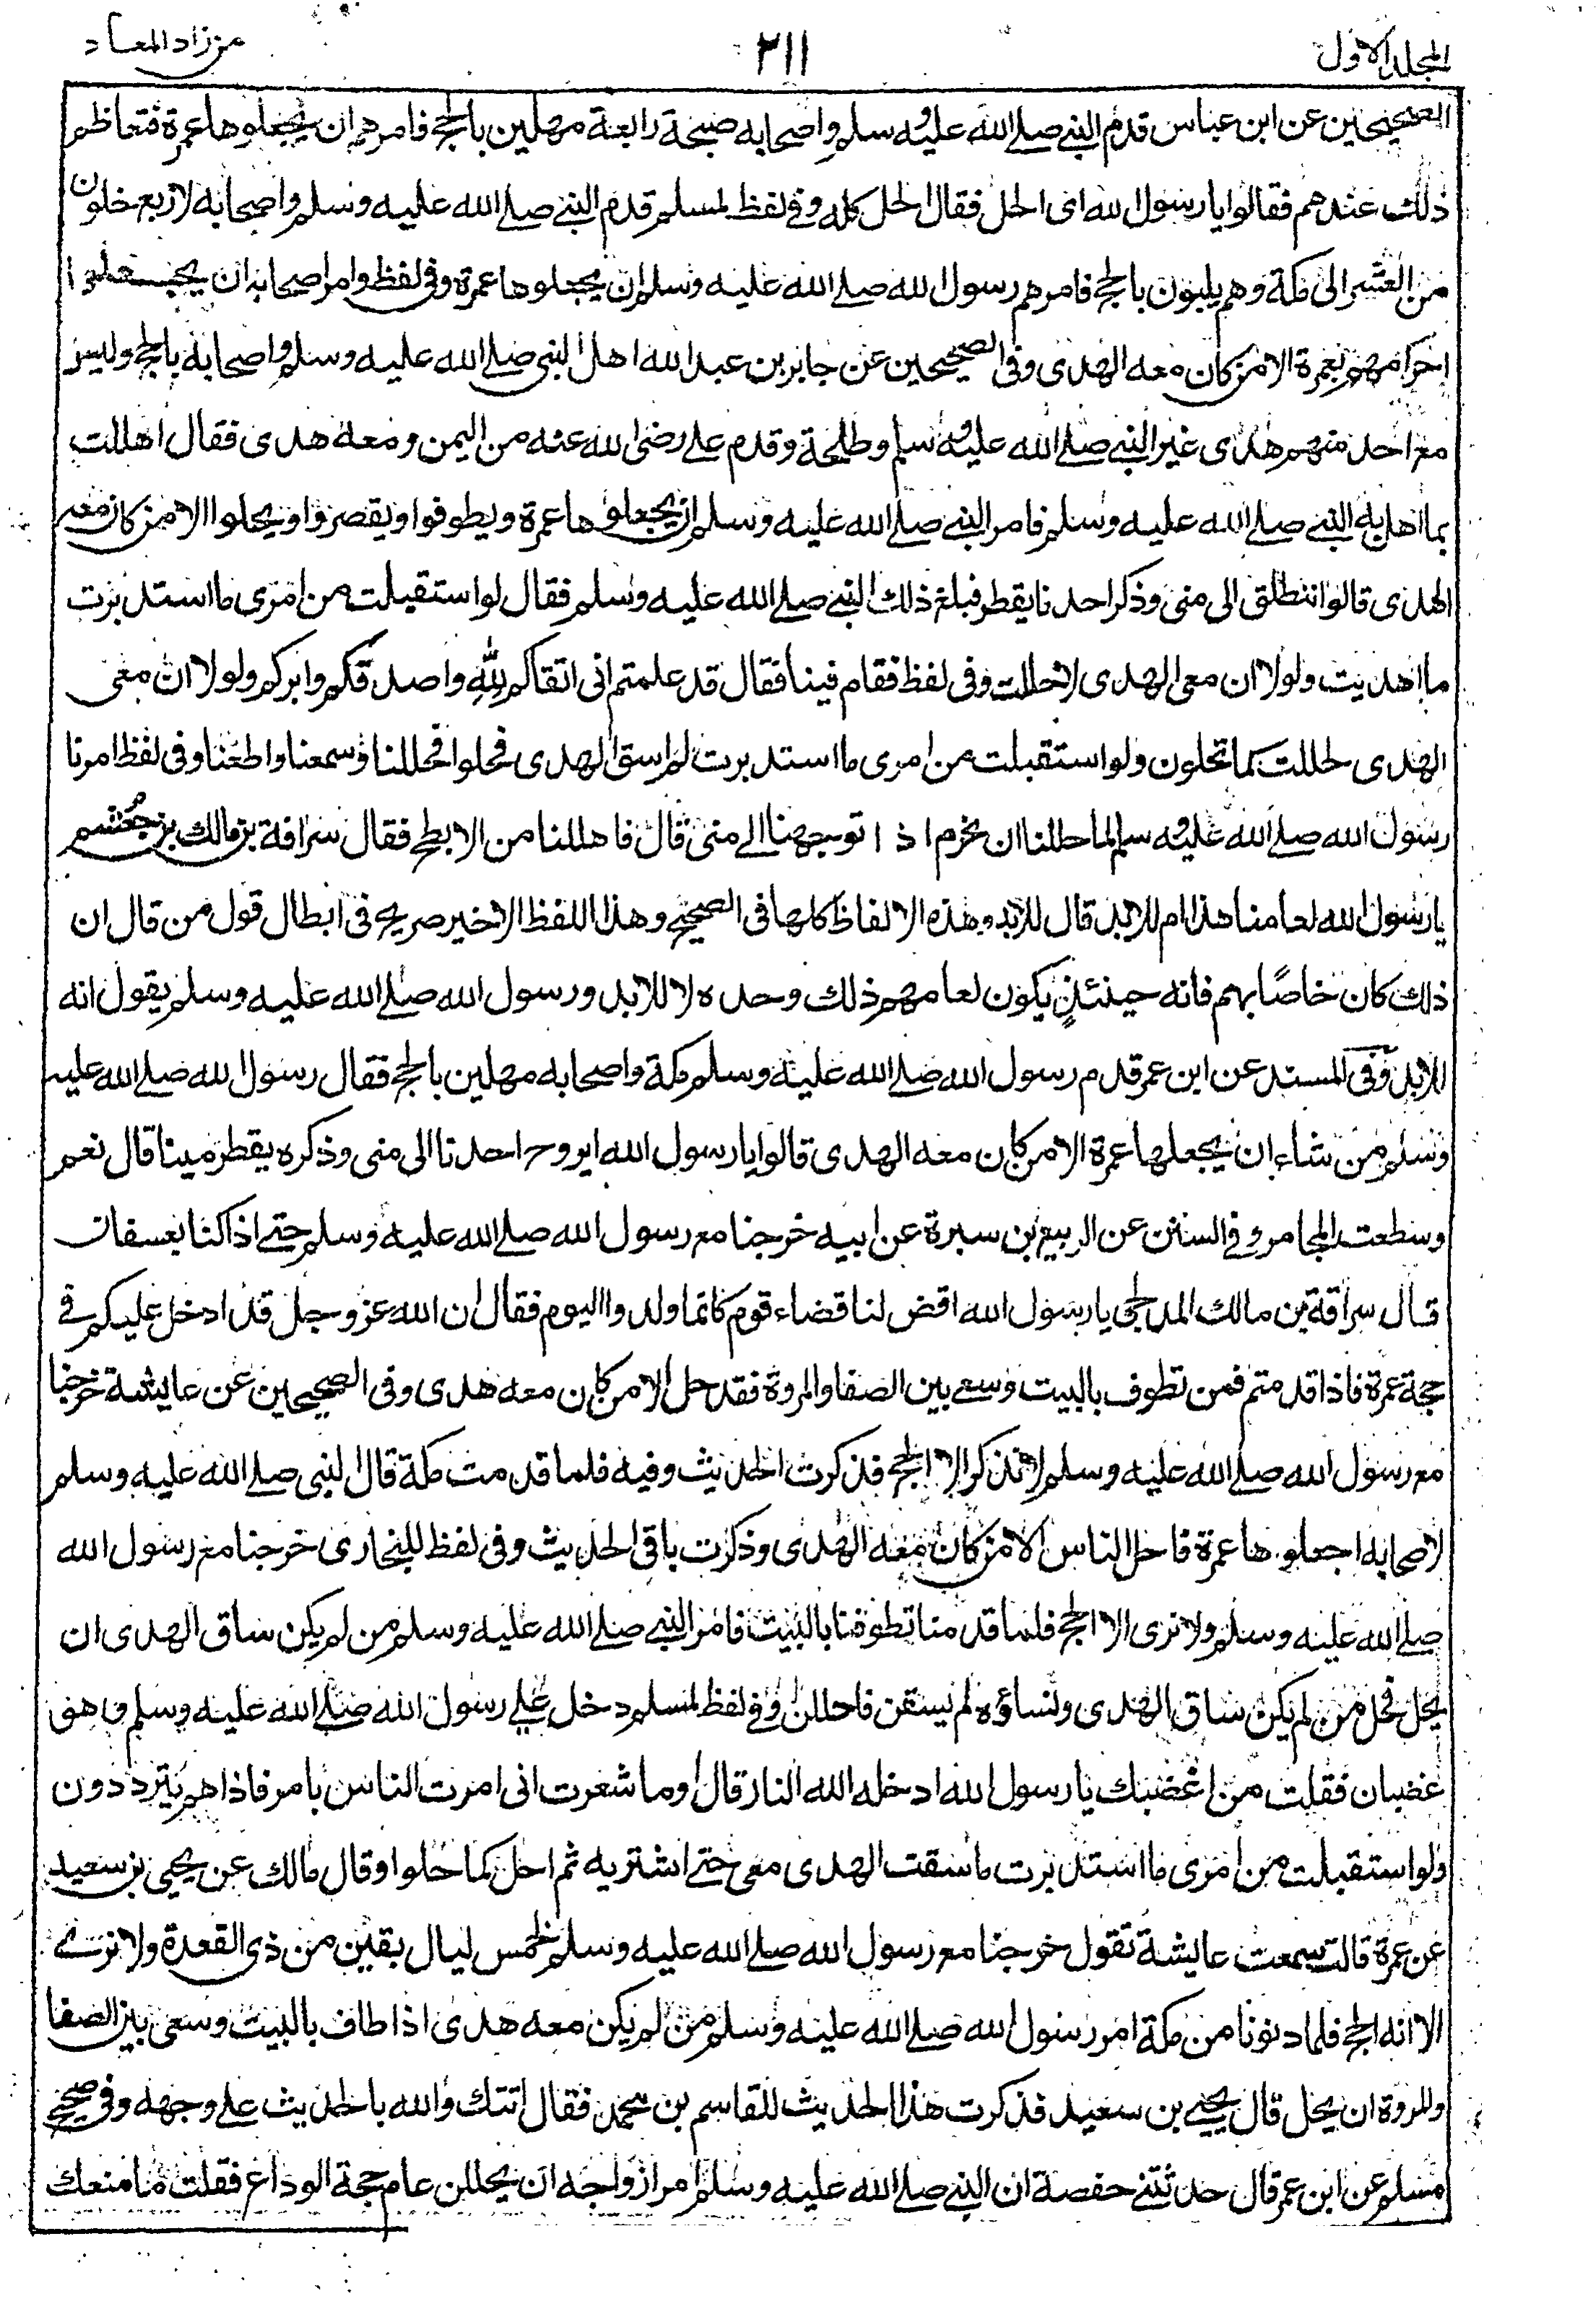 المجلد الاول
٢١١
من زاد المعاد
الصحيحين عن ابن عباس قدم النبي صلى الله عليه وسلم واصحابه صبيحة رابعة مهلين بالحج فامرهم ان يجعلوها عمرة فتعاظم
ذلك عندهم فقالوا يا رسول الله اى الحل فقال الحل كله وفى لفظ لمسلم قدم النبي صلى الله عليه وسلم واصحابه لاربع خلون
من العشر الى مكة وهم يلبون بالحج فامرهم رسول الله صلى الله عليه وسلم ان يجعلوها عمرة وفى لفظ وامر اصحابه ان يجعلوا
احرامهم بعمرة الا من كان معه الهدى وفى الصحيحين عن جابر بن عبد الله اهل النبى صلى الله عليه وسلم واصحابه بالحج وليس
مع احد منهم هدى غير النبي صلى الله عليه وسلم وطلحة وقدم على رضى الله عنه من اليمن ومعه هدى فقال اهللت
بما اهل به النبي صلى الله عليه وسلم فامر النبي صلى الله عليه وسلم ان يجعلوها عمرة ويطوفوا ويقصروا ويحلوا الا من كان معه
الهدى قالوا ننطلق الى منى وذكر احدنا يقطر فبلغ ذلك النبي صلى الله عليه وسلم فقال لو استقبلت من امرى ما استدبرت
ما اهديت ولولا ان معى الهدى لاحللت وفى لفظ فقام فينا فقال قد علمتم انى اتقاكم لله واصدقكم وابركم ولولا ان معى
الهدى لحللت كما تحلون ولو استقبلت من امرى ما استدبرت لم اسق الهدى فحلوا فحللنا وسمعنا واطعنا وفى لفظ امرنا
رسول الله صلى الله عليه وسلم لما حللنا ان نحرم اذا توجهنا الى منى قال فاهللنا من الابطح فقال سراقة بن مالك بن جعشم
يا رسول الله لعامنا هذا ام للابد قال للابد وهذه الالفاظ كلها فى الصحيح وهذا اللفظ الاخير صريح فى ابطال قول من قال ان
ذلك كان خاصًا بهم فانه حينئذٍ يكون لعامهم ذلك وحده لا للابد ورسول الله صلى الله عليه وسلم يقول انه
للابد وفى المسند عن ابن عمر قدم رسول الله صلى الله عليه وسلم مكة واصحابه مهلين بالحج فقال رسول الله صلى الله عليه
وسلم من شاء ان يجعلها عمرة الا من كان معه الهدى قالوا يا رسول الله ايروح احدنا الى منى وذكره يقطر منيا قال نعم
وسطعت المجامر وفى السنن عن الربيع بن سبرة عن ابيه خرجنا مع رسول الله صلى الله عليه وسلم حتى اذا كنا بعسفان
قال سراقة بن مالك المدلجى يا رسول الله اقض لنا قضاء قوم كانما ولدوا اليوم فقال ان الله عز وجل قد ادخل عليكم فى
حجة عمرة فاذا قدمتم فمن تطوف بالبيت وسعى بين الصفا والمروة فقد حل الا من كان معه هدى وفى الصحيحين عن عايشة خرجنا
مع رسول الله صلى الله عليه وسلم لا نذكر الا الحج فذكرت الحديث وفيه فلما قدمت مكة قال النبى صلى الله عليه وسلم
لاصحابه اجعلوها عمرة فاحل الناس الا من كان معه الهدى وذكرت باقى الحديث وفى لفظ للبخارى خرجنا مع رسول الله
صلى الله عليه وسلم ولا نرى الا الحج فلما قدمنا تطوفنا بالبيت فامر النبي صلى الله عليه وسلم من لم يكن ساق الهدى ان
يحل فحل من لم يكن ساق الهدى ونساؤه لم يسقن فاحللن وفى لفظ لمسلم دخل على رسول الله صلى الله عليه وسلم وهو
غضبان فقلت من اغضبك يا رسول الله ادخله الله النار قال اوما شعرت انى امرت الناس بامر فاذا هم يترددون
ولو استقبلت من امرى ما استدبرت ما سقت الهدى معى حتى اشتريه ثم احل كما حلوا وقال مالك عن يحيى بن سعيد
عن عمرة قالت سمعت عايشة تقول خرجنا مع رسول الله صلى الله عليه وسلم لخمس ليال بقين من ذى القعدة ولا نرى
الا انه الحج فلما دنونا من مكة امر رسول الله صلى الله عليه وسلم من لم يكن معه هدى اذا طاف بالبيت وسعى بين الصفا
والمروة ان يحل قال يحيى بن سعيد فذكرت هذا الحديث للقاسم بن محمد فقال اتتك والله بالحديث على وجهه وفى صحيح
مسلم عن ابن عمر قال حدثتنى حفصة ان النبي صلى الله عليه وسلم امر ازواجه ان يحللن عام حجة الوداع فقلت ما منعك